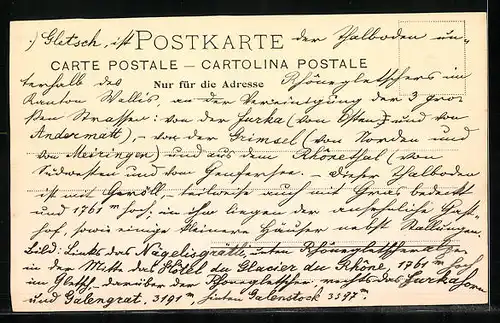 :) Gletsch, ist POSTKARTE der Thalboden un=
CARTE POSTALE – CARTOLINA POSTALE
terhalb des Nur für die Adresse Rhônegletschers im
Kanton Wallis, an der Vereinigung der 3 gro-
ßen Strassen: von der Furka (von Osten und von
Andermatt), – von der Grimsel (von Norden und
von Meiringen) und aus dem Rhônethal (von
Südwesten und vom Genfersee. – Dieser Thalboden
ist mit Geröll, teilweise auch mit Gras bedeckt
und 1761 m hoch, in ihm liegen der ansehnliche Gast-
hof, sowie einige kleinere Häuser nebst Stallungen.
Bild: Links das Nägelisgrätli, unten Rhônegletscher
in der Mitte das Hôtel du Glacier du Rhône, 1761 m hoch
im Gletsch, darüber der Rhonegletscher, rechts das Furkahorn
und Galengrat, 3191 m, hinten Galenstock 3397 m.